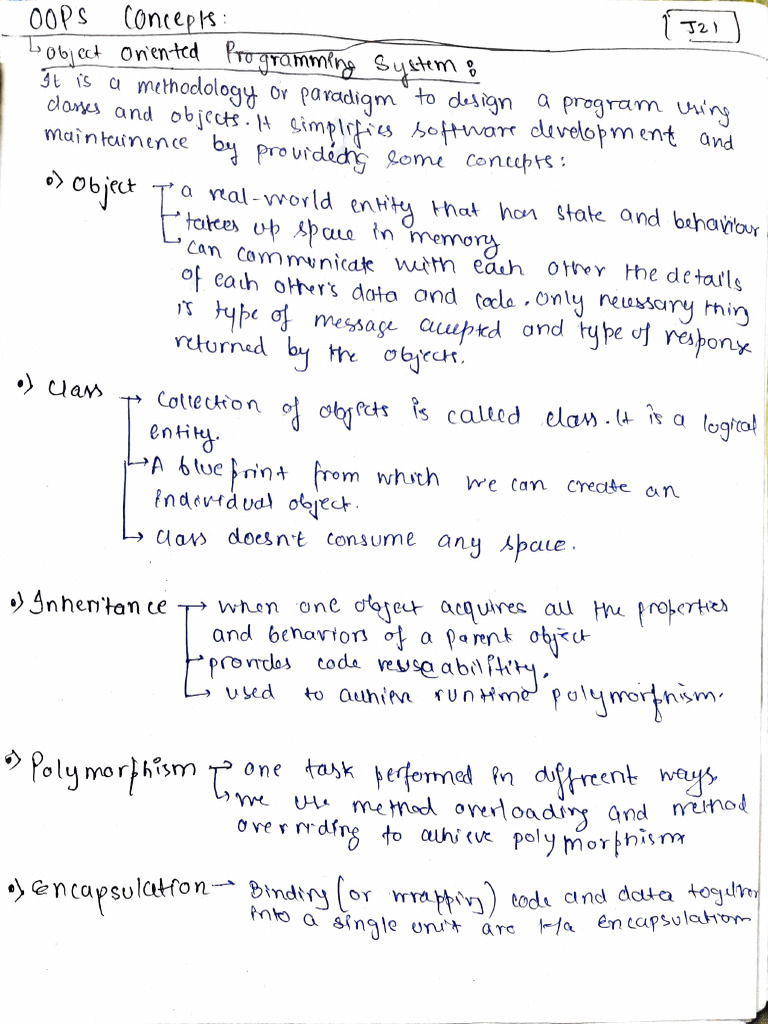 OOPS Concepts:
J21
Object Oriented Programming System:
It is a methodology or paradigm to design a program using
classes and objects. It simplifies software development and
maintainence by providing some concepts:
Object → a real-world entity that has state and behaviour
takes up space in memory
can communicate with each other the details
of each other's data and code. Only necessary thing
is type of message accepted and type of response
returned by the objects.
Class → Collection of objects is called class. It is a logical
entity.
→ A blue print from which we can create an
individual object.
→ class doesn't consume any space.
Inheritance → when one object acquires all the properties
and behaviors of a parent object
provides code reuseability.
→ used to achieve runtime polymorphism.
Polymorphism → one task performed in different ways
→ we use method overloading and method
overriding to achieve polymorphism
Encapsulation → Binding (or wrapping) code and data together
into a single unit are k/a encapsulation